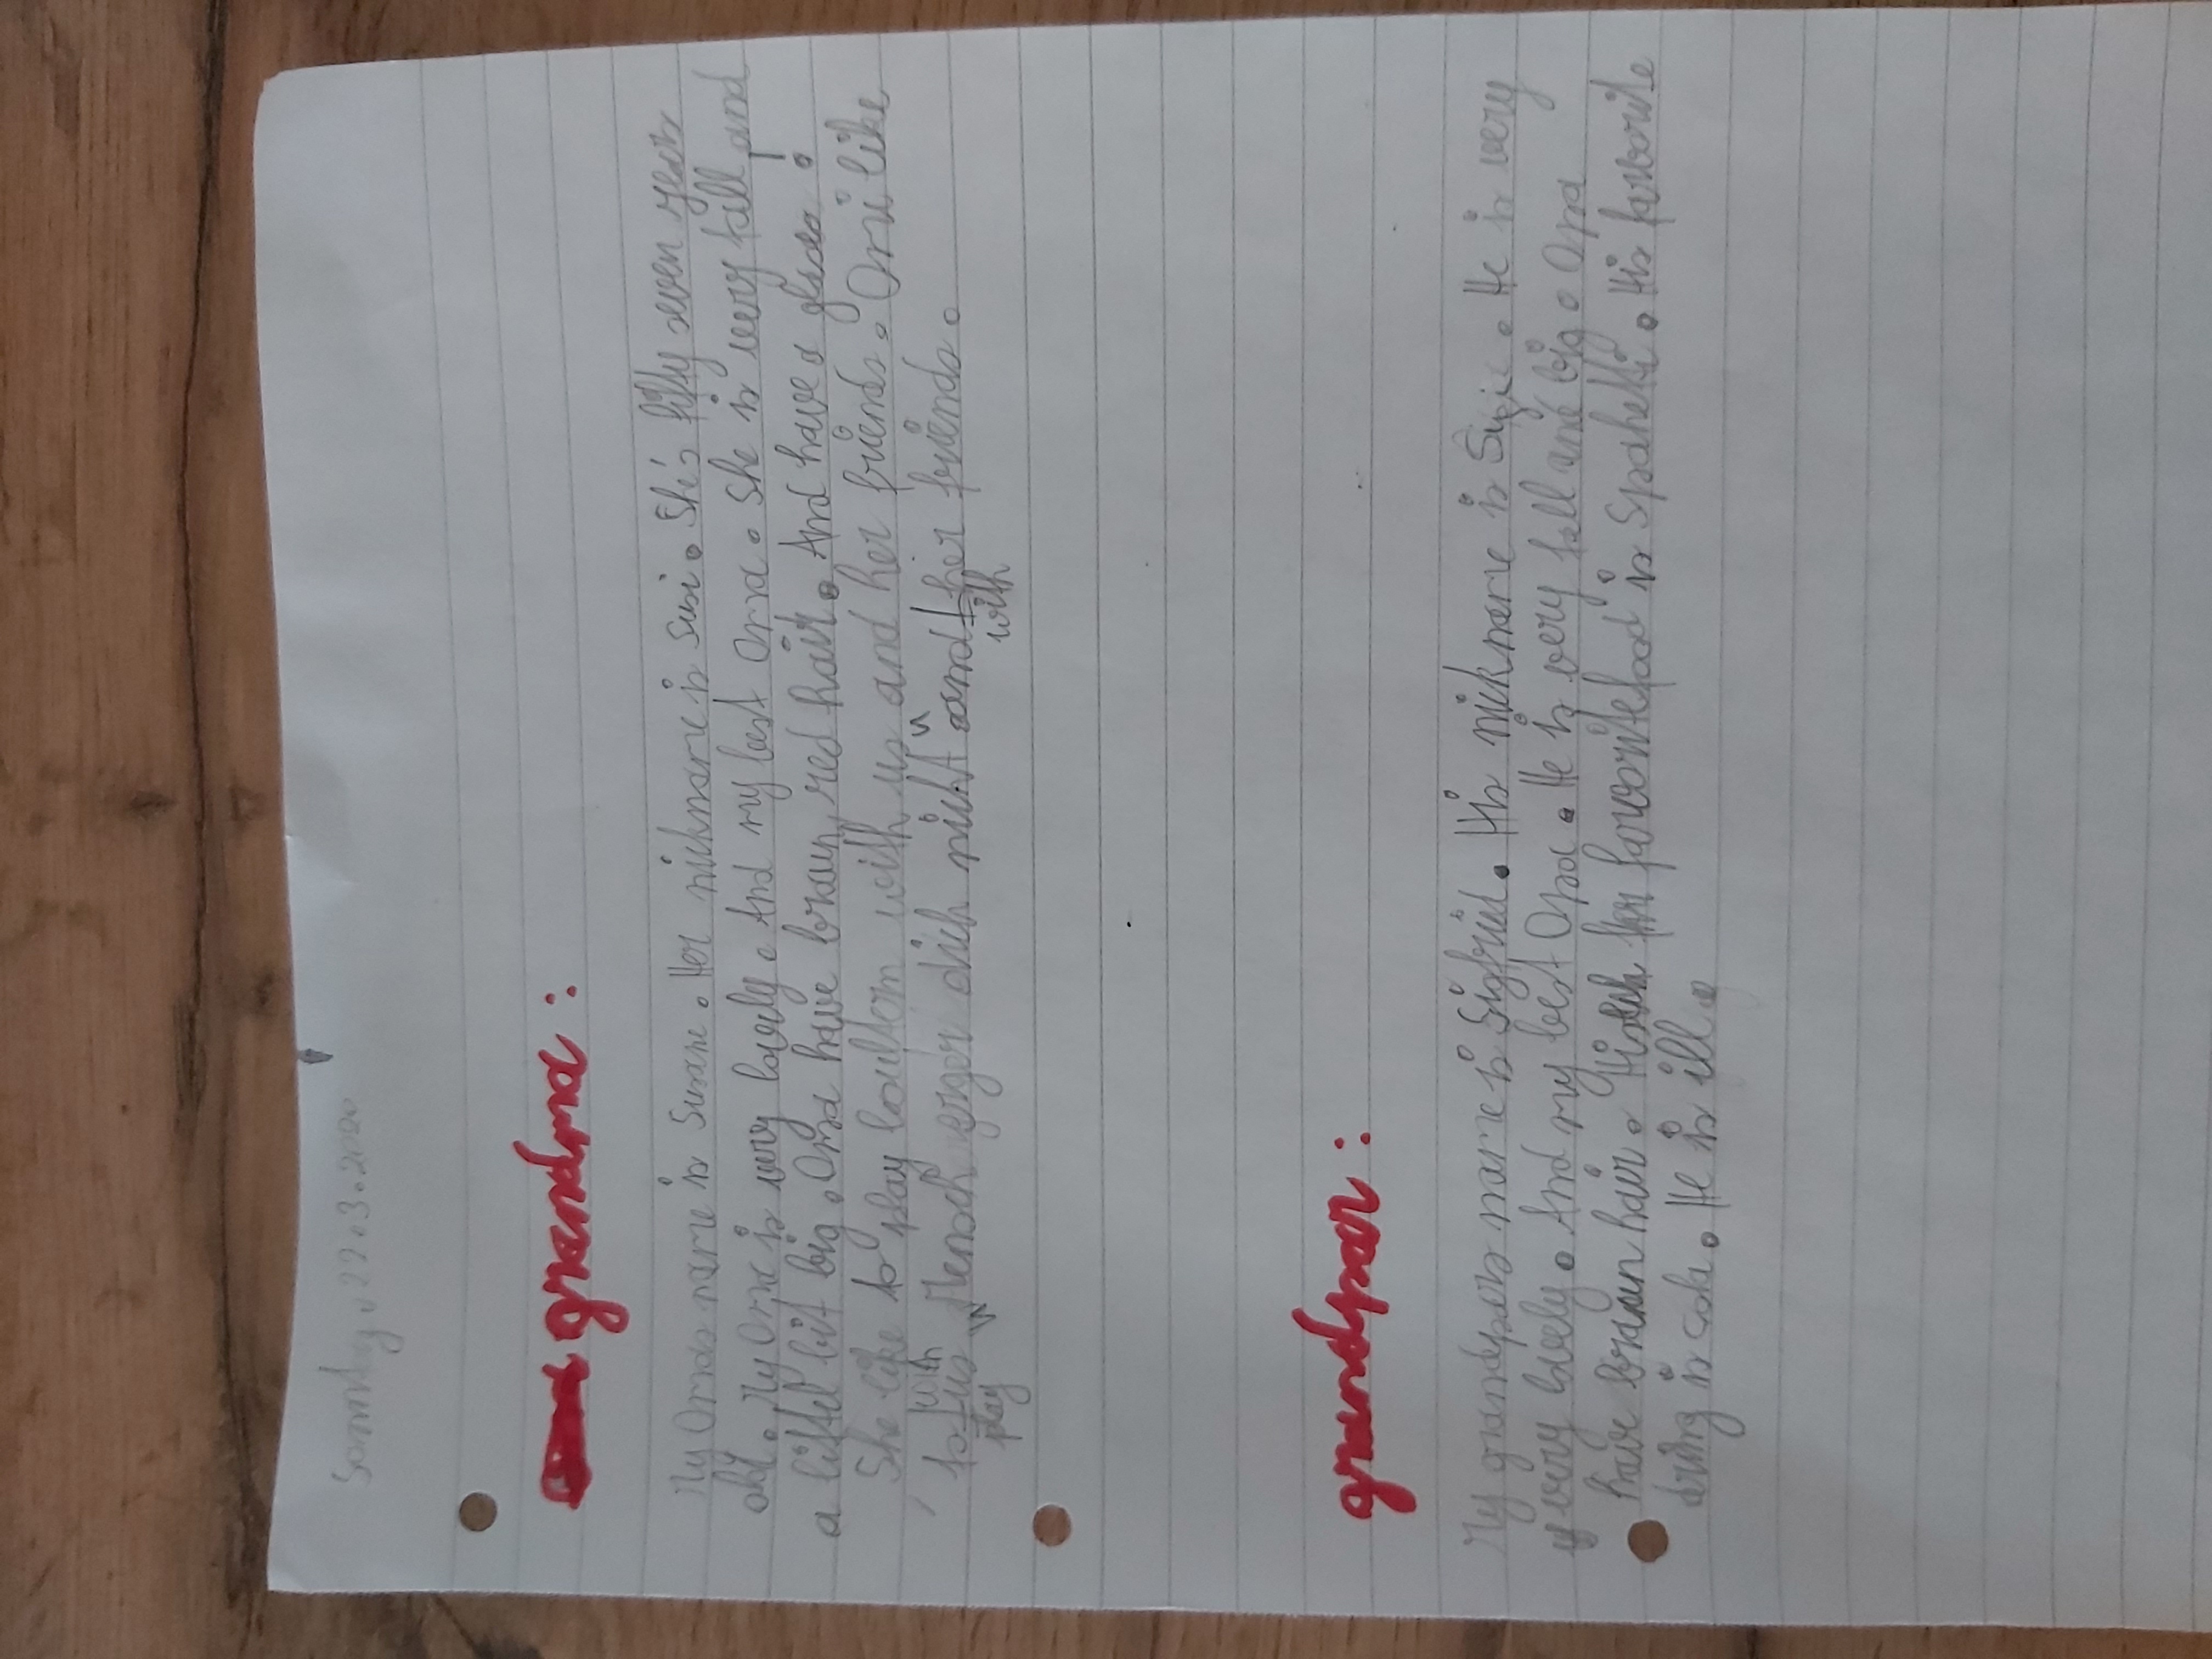 Sonntag, 22.3.2020
grandma:
My Omas name is Susane. Her nickname is Susi. She's fifty seven years
old. My Oma is very lovely. And my best Oma. She is very tall and
a littel bit big. Oma have braun, red hair. And have a glases.
She like to play boulfen with us and her friends. Omi like
to play with us "Mensch erger dich nicht" and with her friends.
grandpar:
My grandpers name is Sigfrid. His nickname is Sigi. He is very
very lovely. And my best Opa. He is very tall and big. Opa
have braun hair. His favoritefood is Spahetti. His favorite
dring is cola. He is ill.